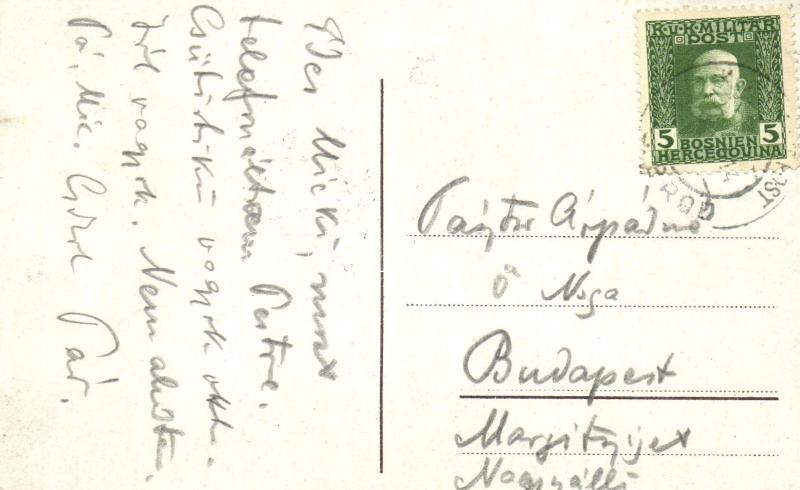 Édes Micku, most
telefonáltam Pestre.
Csütörtökön vagyok otth.
Jól vagyok. Nem aludtam.
Pá, Mic.
K.u.K. MILITÄR
POST
5 5
BOSNIEN
HERCEGOVINA
BROD
Pásztor Árpádné
Ő Nsga
Budapest
Margitsziget
Nagyszálló